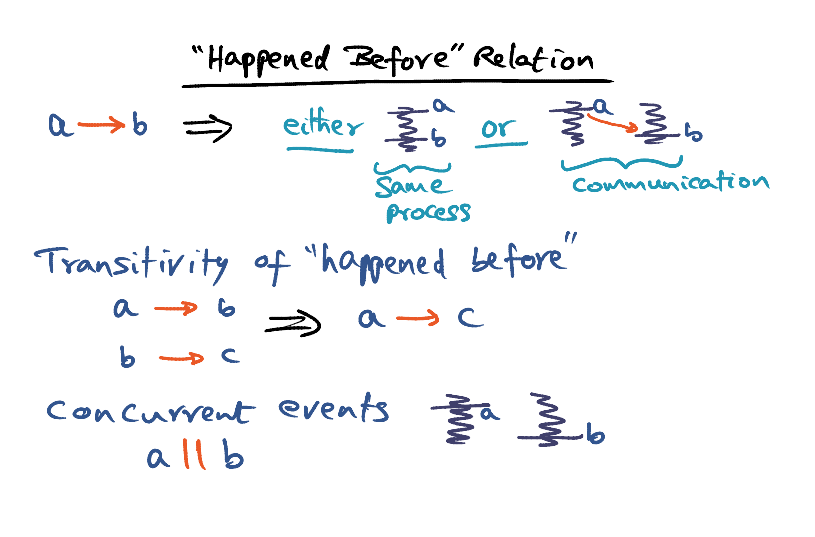 "Happened Before" Relation
a → b ⇒ either a b or a b
same process
communication
Transitivity of "happened before"
a → b ⇒ a → c
b → c
Concurrent events a b
a || b